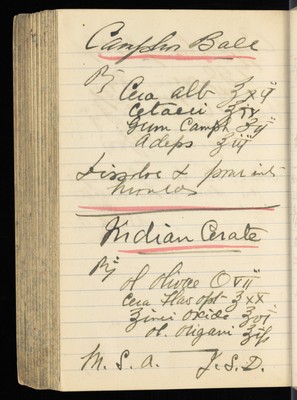 Camphor Ball
℞
Cera alb ℥xij
Cetacei ℥iv
Gum Camph ℥ij
Adeps ℥iij
Dissolve & pour into
moulds
Indian Cerate
℞
Ol Olivae O vij
Cera Flav opt ℥xx
Zinci Oxide ℥vi
Ol. Origani ℥ifs
M. S. A. J. S. D.